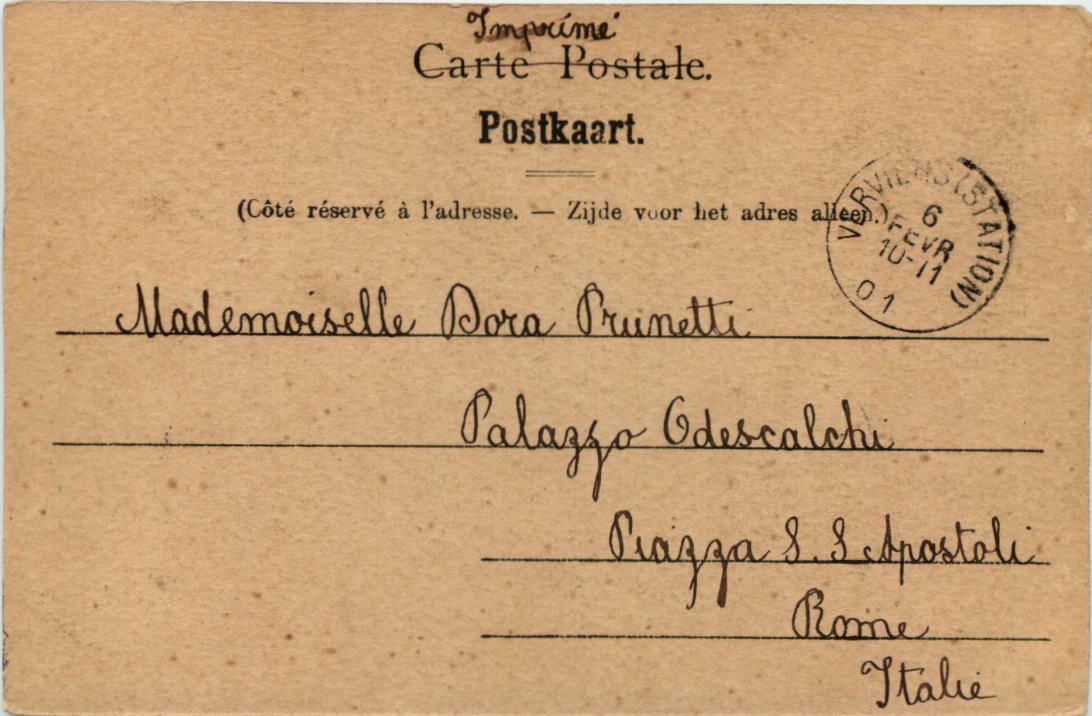 Imprimé
Carte Postale.
Postkaart.
(Côté réservé à l'adresse. — Zijde voor het adres alleen.)
VERVIERS (STATION)
6
FEVR
10-11
01
Mademoiselle Dora Prunetti
Palazzo Odescalchi
Piazza S. S. Apostoli
Rome
Italie